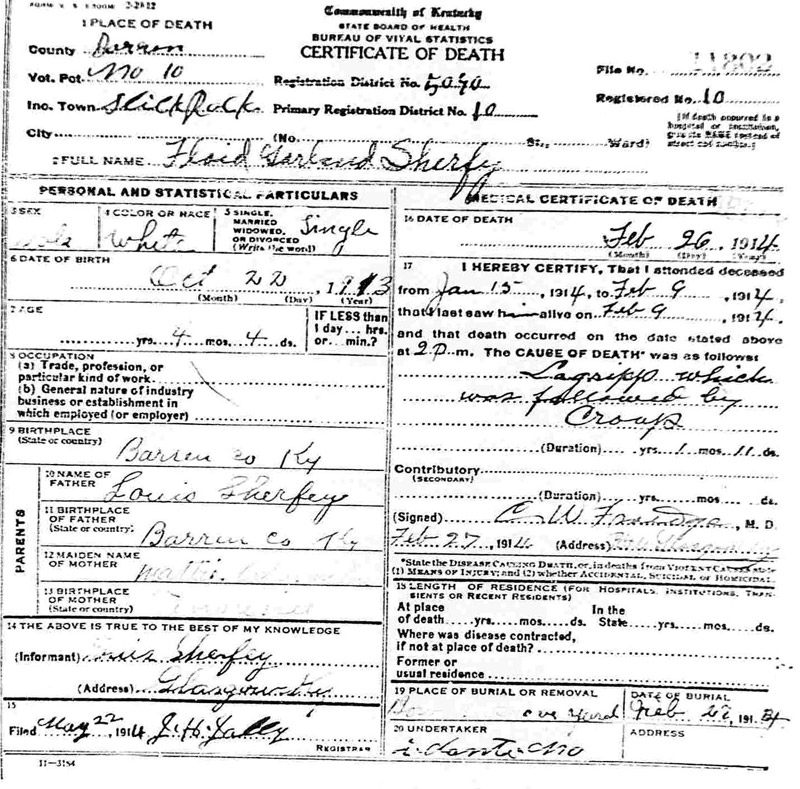 Commonwealth of Kentucky
STATE BOARD OF HEALTH
BUREAU OF VITAL STATISTICS
CERTIFICATE OF DEATH
1 PLACE OF DEATH
County Barren
Vot. Pct No 10
Inc. Town Slick Rock
City
File No. 11802
Registration District No. 5090
Registered No. 10
Primary Registration District No. 10
(No. St., Ward)
[If death occurred in a hospital or institution, give its NAME instead of street and number.]
2 FULL NAME Floid Garland Sherfy
PERSONAL AND STATISTICAL PARTICULARS
3 SEX
4 COLOR OR RACE White
5 SINGLE, MARRIED WIDOWED, OR DIVORCED (Write the word) Single
6 DATE OF BIRTH
Oct 22, 1913
(Month) (Day) (Year)
7 AGE
yrs. 4 mos. 4 ds.
IF LESS than 1 day... hrs. or... min.?
8 OCCUPATION
(a) Trade, profession, or
particular kind of work
(b) General nature of industry
business or establishment in
which employed (or employer)
9 BIRTHPLACE
(State or country)
Barren Co Ky
PARENTS
10 NAME OF FATHER
Louis Sherfey
11 BIRTHPLACE OF FATHER
(State or country)
Barren Co Ky
12 MAIDEN NAME OF MOTHER
13 BIRTHPLACE OF MOTHER
(State or country)
14 THE ABOVE IS TRUE TO THE BEST OF MY KNOWLEDGE
(Informant) Sherfey
(Address) Glasgow Ky
15
Filed May 22, 1914
REGISTRAR
11—3184
MEDICAL CERTIFICATE OF DEATH
16 DATE OF DEATH
Feb 26, 1914
(Month) (Day) (Year)
17 I HEREBY CERTIFY, That I attended deceased
from Jan 15, 1914, to Feb 9, 1914,
that I last saw him alive on Feb 9, 1914,
and that death occurred on the date stated above
at 2 P.m. The CAUSE OF DEATH* was as follows:
Lagripp which
was followed by
Croup
(Duration) yrs. 1 mos. 11 ds.
Contributory
(SECONDARY)
(Duration) yrs. mos. ds.
(Signed) C W, M. D.
Feb 27, 1914 (Address)
*State the DISEASE CAUSING DEATH, or, in deaths from VIOLENT CAUSES state
(1) MEANS OF INJURY; and (2) whether ACCIDENTAL, SUICIDAL or HOMICIDAL
18 LENGTH OF RESIDENCE (FOR HOSPITALS, INSTITUTIONS, TRANSIENTS OR RECENT RESIDENTS)
At place of death yrs. mos. ds. In the State yrs. mos. ds.
Where was disease contracted,
if not at place of death?
Former or
usual residence
19 PLACE OF BURIAL OR REMOVAL
DATE OF BURIAL
Feb 27, 1914
20 UNDERTAKER
ADDRESS